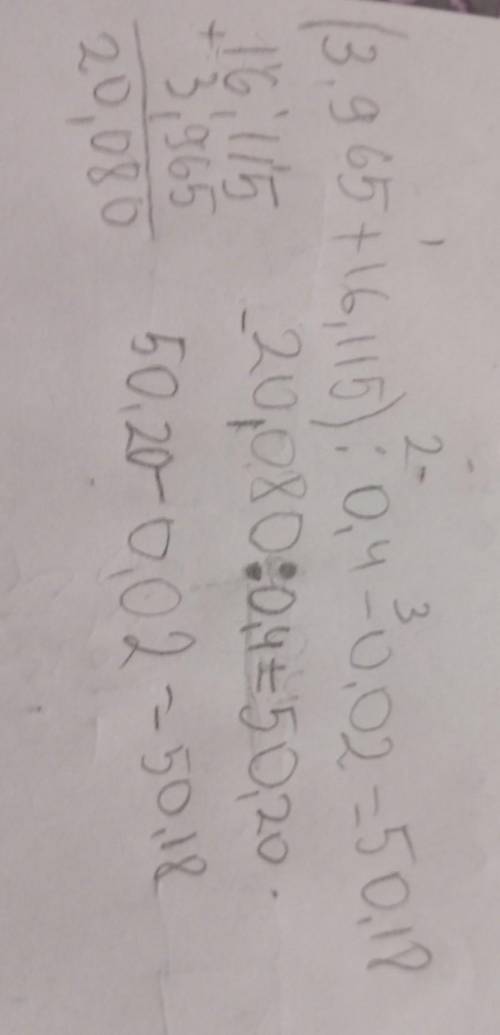 (3,965 + 16,115) : 0,4 - 0,02 = 50,18
1 2 3
+ 16,115
3,965
20,080
- 20,080 : 0,4 = 50,20.
50,20 - 0,02 = 50,18